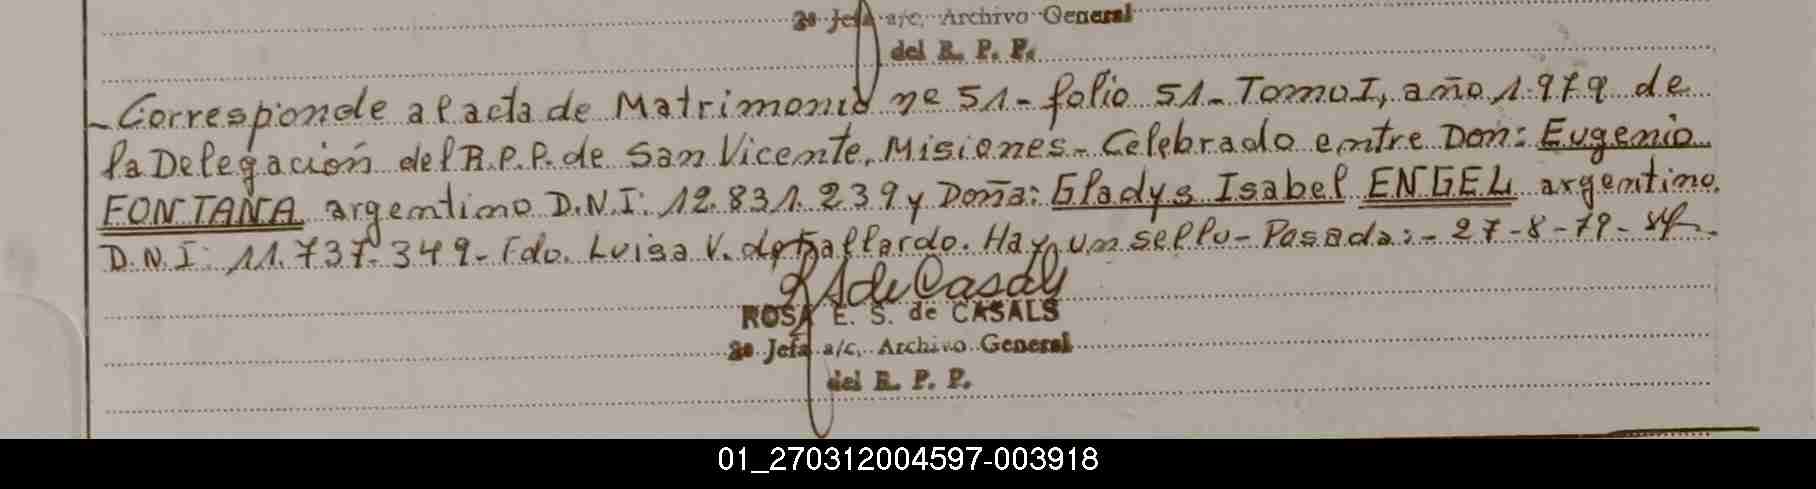 2º Jefa a/c. Archivo General
del R. P. P.
- Corresponde al acta de Matrimonio nº 51 - folio 51 - Tomo I, año 1.979 de
la Delegación del R.P.P. de San Vicente, Misiones - Celebrado entre Don: Eugenio
FONTANA argentino D.N.I: 12.831.239 y Doña: Gladys Isabel ENGEL argentina.
D.N.I: 11.737.349 - Fdo. Luisa V. de Gallardo. Hay un sello - Posadas: - 27-8-79 -
RSdeCasals
ROSA E. S. de CASALS
2º Jefa a/c. Archivo General
del R. P. P.
01_270312004597-003918